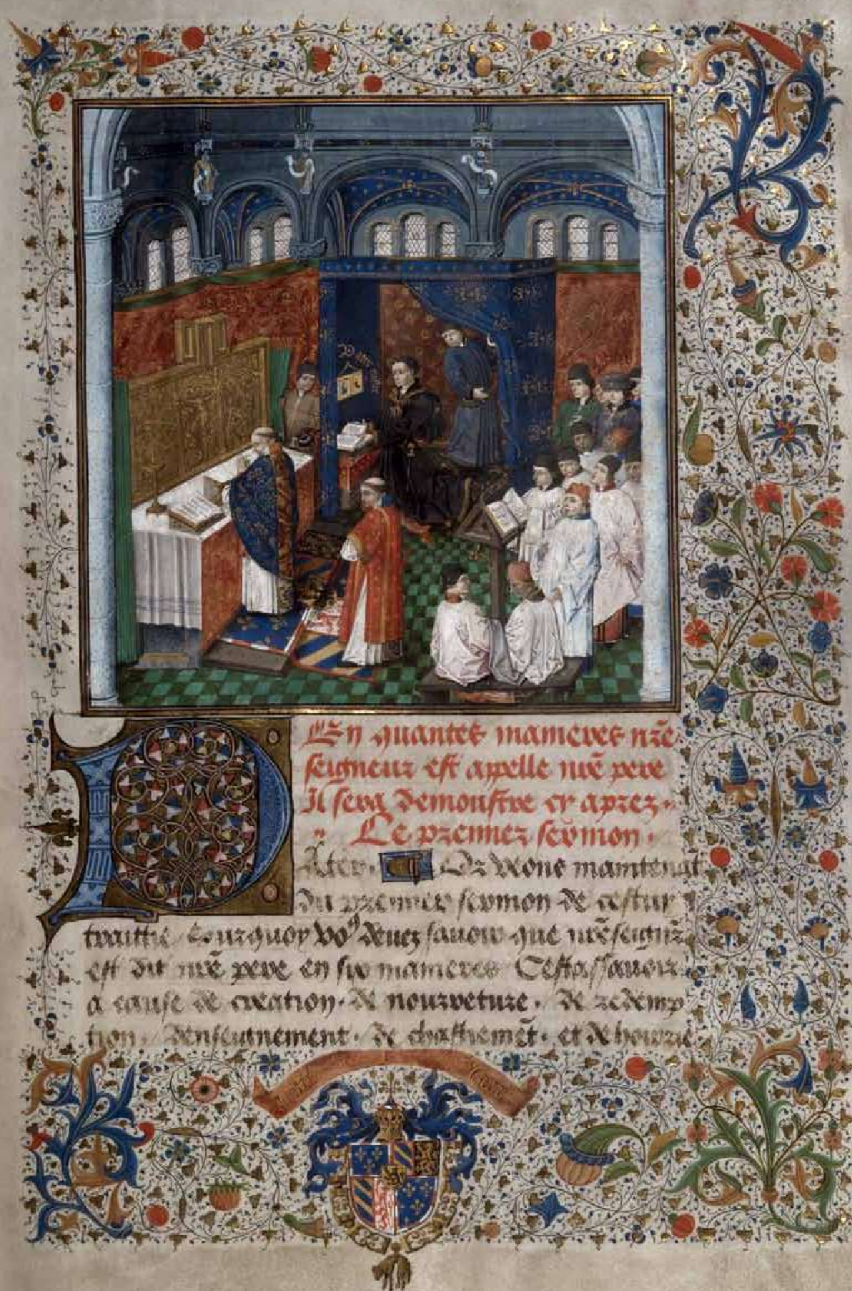 En quantes manieres nr̄e
seigneur est appelle nr̄e pere
Il sera demonstre cy aprez.
Le premier sermon.
PAter. Or veons maintenāt
du premier sermon de cestui
traittie / Pourquoy vo⁹ deuez sauoir que nr̄e seignr̄
est dit nr̄e pere en six manieres Cestassauoir
a cause de creation. de nourreture. de redemp
tion. denseignement. de chastiemēt. et de